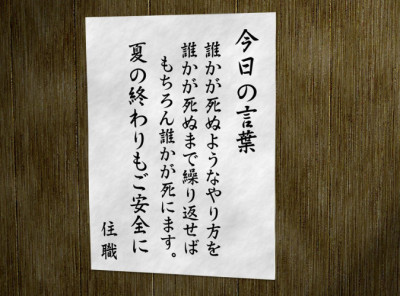 今日の言葉
誰かが死ぬようなやり方を
誰かが死ぬまで繰り返せば
もちろん誰かが死にます。
夏の終わりもご安全に
住職